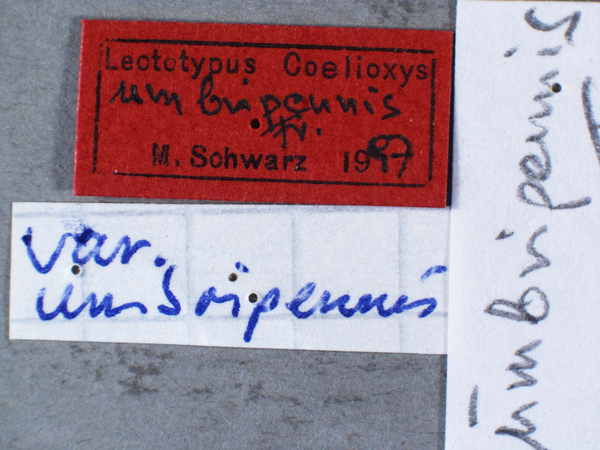 Lectotypus Coelioxys
umbripennis
Fr.
M. Schwarz 1997
var.
umbripennis
umbripennis